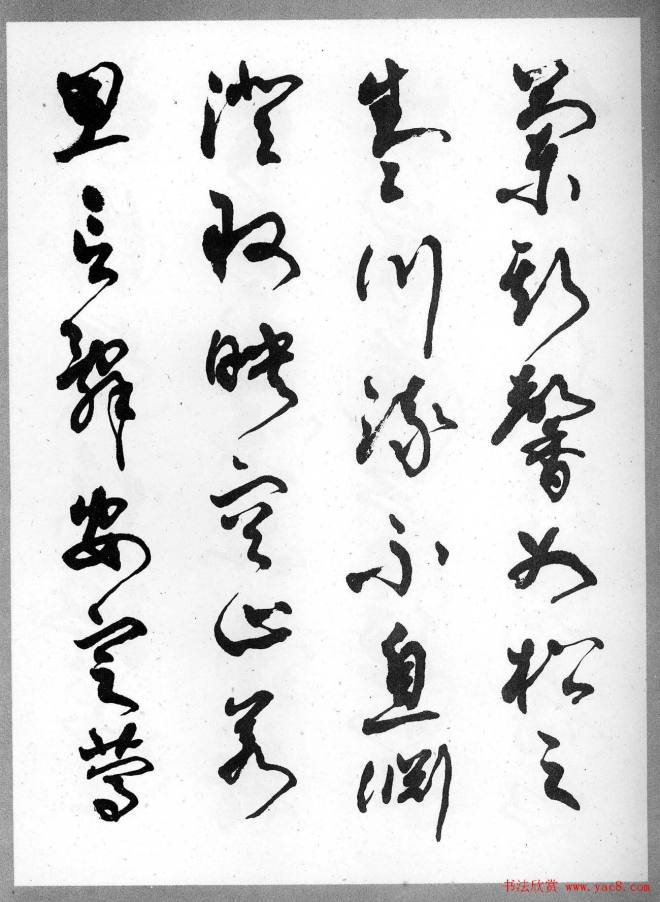 蘭斯馨如松之
盛川流不息淵
澄取映容止若
思言辭安定篤
书法欣赏 www.yac8.com